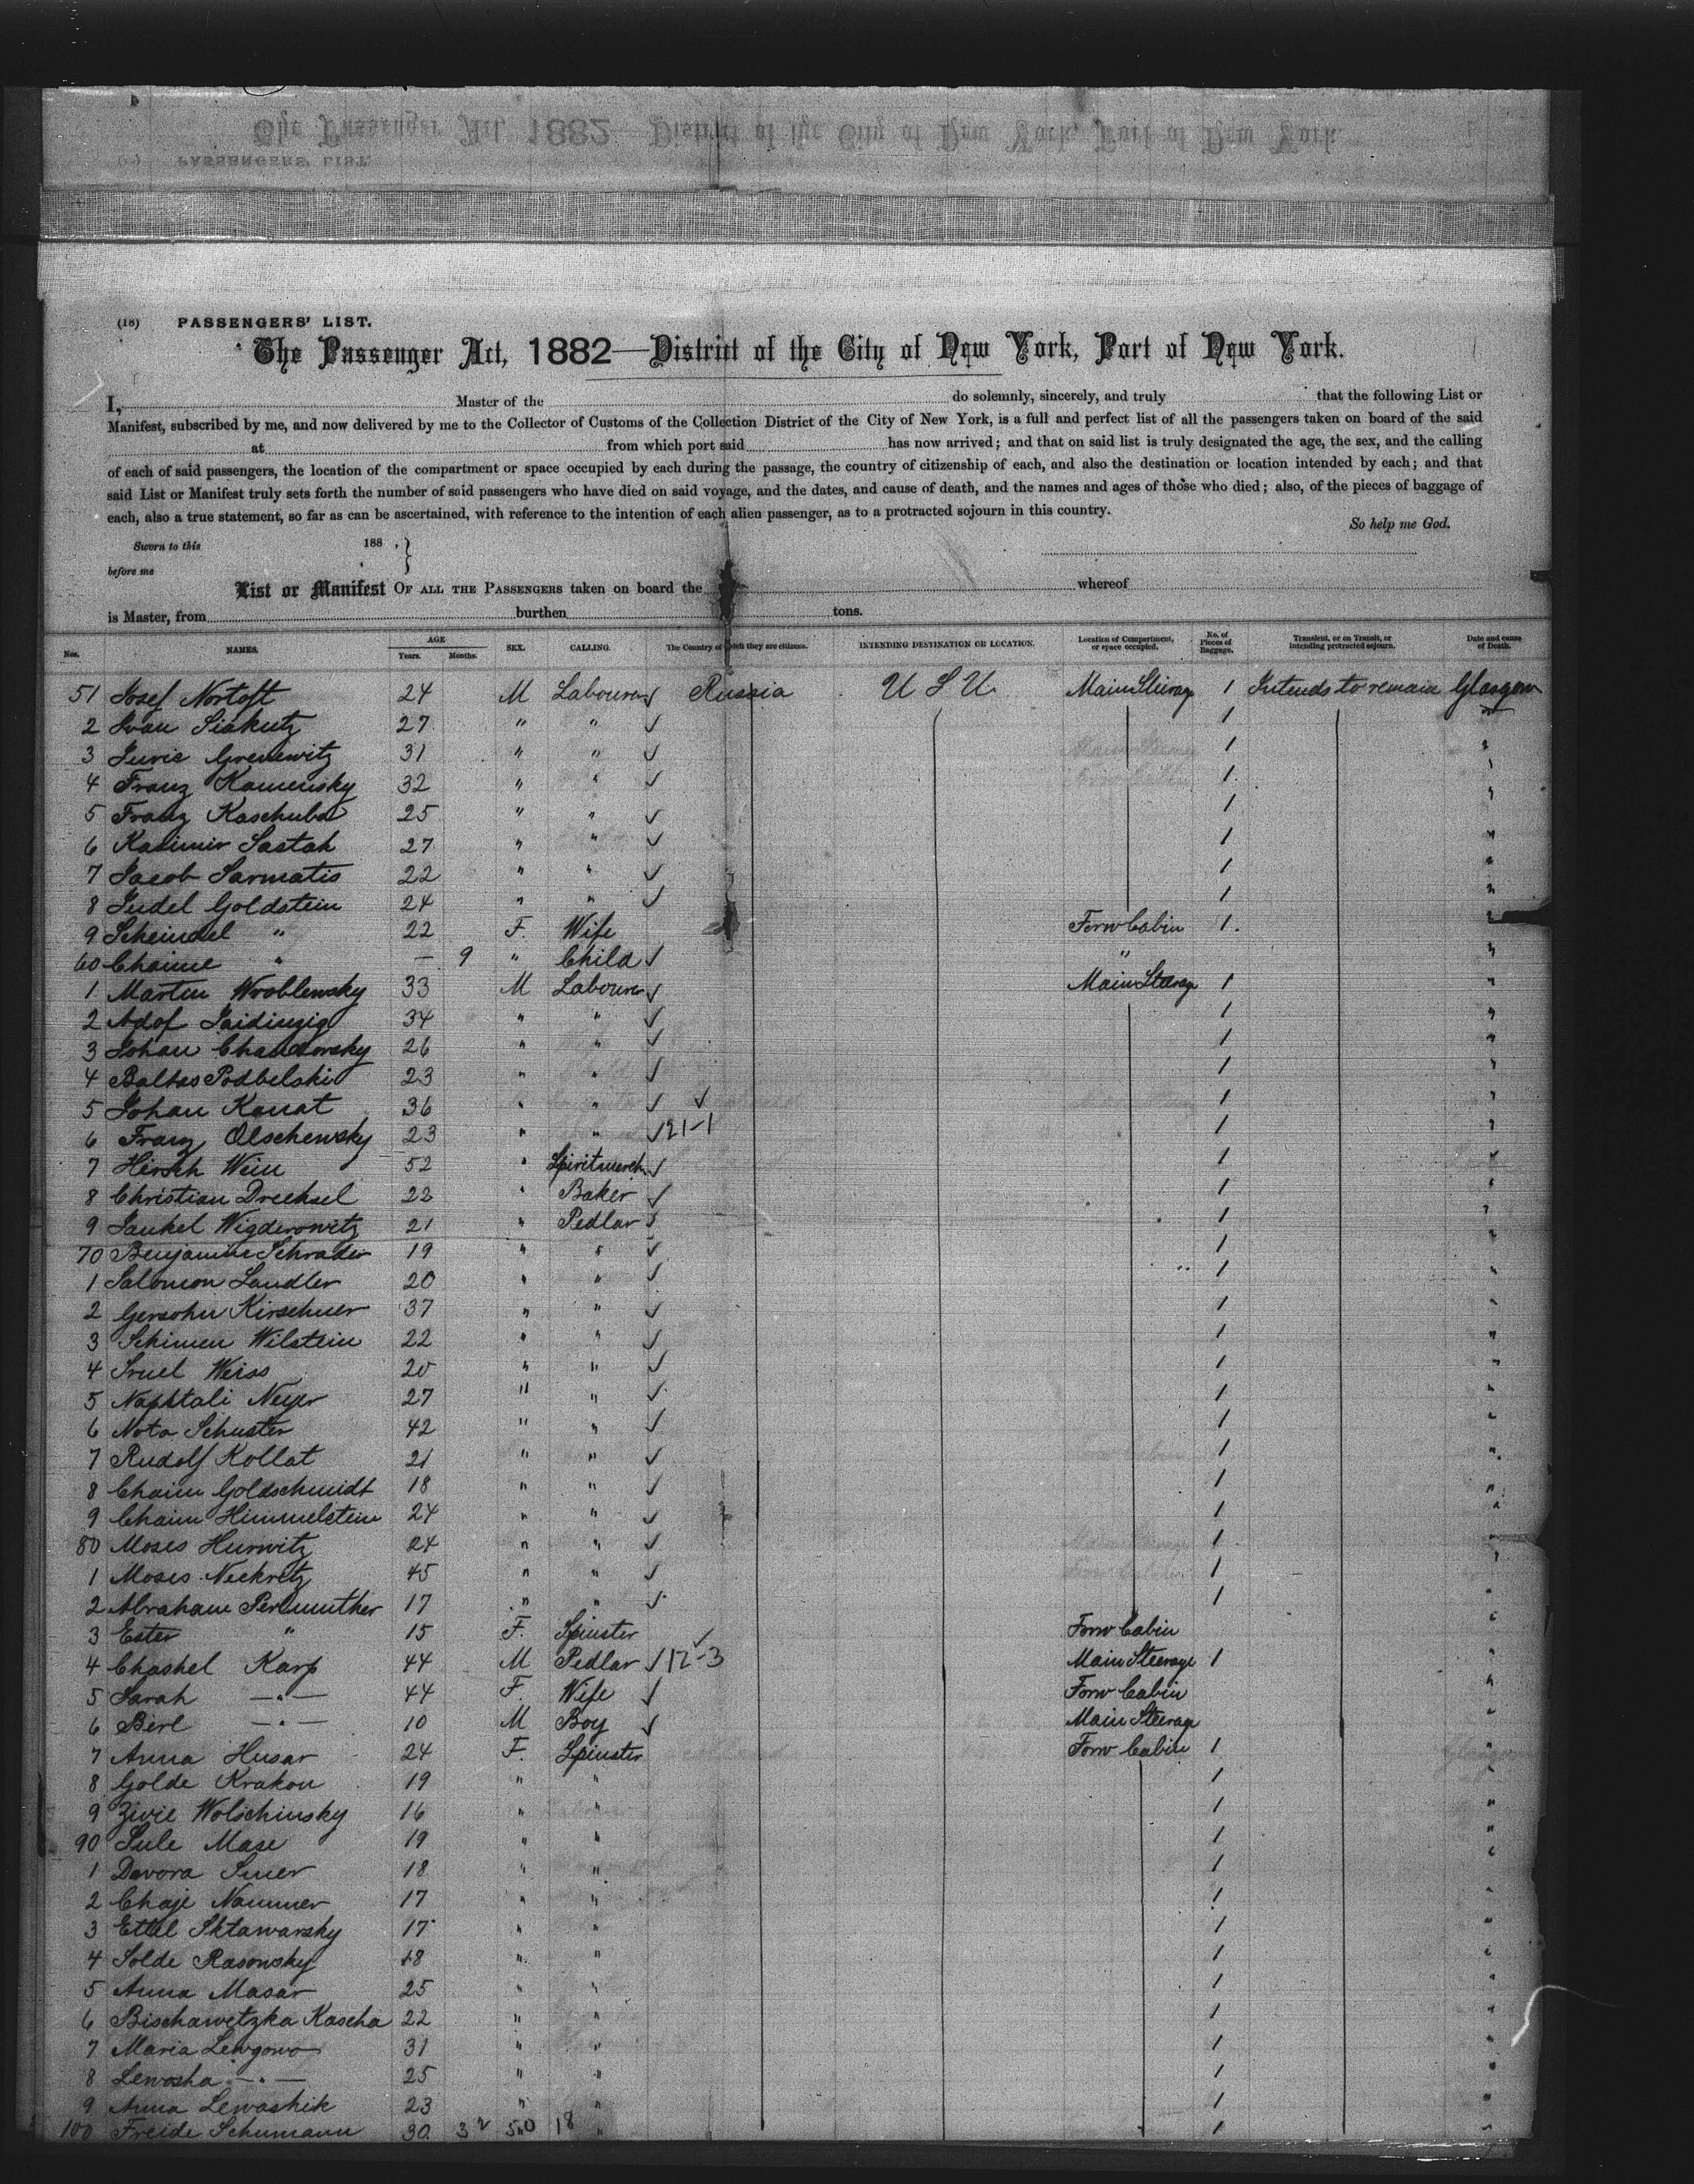 (18) PASSENGERS' LIST.
The Passenger Act, 1882—District of the City of New York, Port of New York.
I, Master of the do solemnly, sincerely, and truly that the following List or
Manifest, subscribed by me, and now delivered by me to the Collector of Customs of the Collection District of the City of New York, is a full and perfect list of all the passengers taken on board of the said
at from which port said has now arrived; and that on said list is truly designated the age, the sex, and the calling
of each of said passengers, the location of the compartment or space occupied by each during the passage, the country of citizenship of each, and also the destination or location intended by each; and that
said List or Manifest truly sets forth the number of said passengers who have died on said voyage, and the dates, and cause of death, and the names and ages of those who died; also, of the pieces of baggage of
each, also a true statement, so far as can be ascertained, with reference to the intention of each alien passenger, as to a protracted sojourn in this country.
So help me God.
Sworn to this 188 ,
before me
List or Manifest OF ALL THE PASSENGERS taken on board the whereof
is Master, from burthen tons.
Nos. NAMES. AGE Years. Months. SEX. CALLING. The Country of which they are citizens. INTENDING DESTINATION OR LOCATION. Location of Compartment, or space occupied. No. of Pieces of Baggage. Transient, or on Transit, or intending protracted sojourn. Date and cause of Death.
51 Josef Nortoft 24 M Labourer ✓ Russia U S U Main Steerage 1 Intends to remain Glasgow
2 Ivan Siakutz 27 " " ✓ 1 "
3 Jurie Grenewitz 31 " " ✓ 1 "
4 Franz Kamensky 32 " " ✓ 1 "
5 Franz Kaschuba 25 " " ✓ 1 "
6 Kasimir Sastak 27 " " ✓ 1 "
7 Jacob Sarmatis 22 " " ✓ 1 "
8 Judel Goldstein 24 " " ✓ 1 "
9 Scheindel " 22 F. Wife Forw Cabin 1. "
60 Chaime " — 9 " Child ✓ " "
1 Martin Wroblewsky 33 M Labourer ✓ Main Steerage 1 "
2 Adof 34 " " ✓ 1 "
3 Johan Chandorsky 26 " " ✓ 1 "
4 Baltas Podbelski 23 " " ✓ 1 "
5 Johan Kanat 36 " " ✓ ✓ 1 "
6 Franz Olschewsky 23 " " ✓ 21-1 1 "
7 Hirsch Wein 52 " Spiritmerch ✓ 1 "
8 Christian Drechsel 22 " Baker ✓ 1 "
9 Jankel Wigderowitz 21 " Pedlar ✓ 1 "
70 Benjamin Schrader 19 " " ✓ 1 "
1 Salomon Landler 20 " " ✓ 1 "
2 Gersohn Kirschner 37 " " ✓ 1 "
3 Schimen Wilstein 22 " " ✓ 1 "
4 Sruel Weiss 20 " " ✓ 1 "
5 Naphtali Neyer 27 " " ✓ 1 "
6 Nota Schuster 42 " " ✓ 1 "
7 Rudolf Kollat 21 " " ✓ 1 "
8 Chaim Goldschmidt 18 " " ✓ 1 "
9 Chaim Himmelstein 24 " " ✓ 1 "
80 Moses Hurwitz 24 " " ✓ 1 "
1 Moses Neckretz 45 " " ✓ 1 "
2 Abraham Perlmuther 17 " " ✓ 1 "
3 Ester " 15 F. Spinster ✓ Forw Cabin "
4 Chashel Karp 44 M Pedlar ✓ 12-3 Main Steerage 1 "
5 Sarah —"— 44 F. Wife ✓ Forw Cabin "
6 Berl —"— 10 M Boy ✓ Main Steerage "
7 Anna Husar 24 F. Spinster Forw Cabin 1 "
8 Golde Krakou 19 " " 1 "
9 Zivie Wolschinsky 16 " " 1 "
90 Sule Mase 19 " " 1 "
1 Davora Smer 18 " " 1 "
2 Chaje Nammer 17 " " 1 "
3 Ettel Sktawarsky 17 " " 1 "
4 Solde Rasowsky 18 " " 1 "
5 Anna Masar 25 " " 1 "
6 Bischawetzka Kascha 22 " " 1 "
7 Maria Lewgowo 31 " " 1 "
8 Lewosha —"— 25 " " 1 "
9 Anna Lewashik 23 " " 1 "
100 Freide Schumann 30 32 50 18 " 1 "